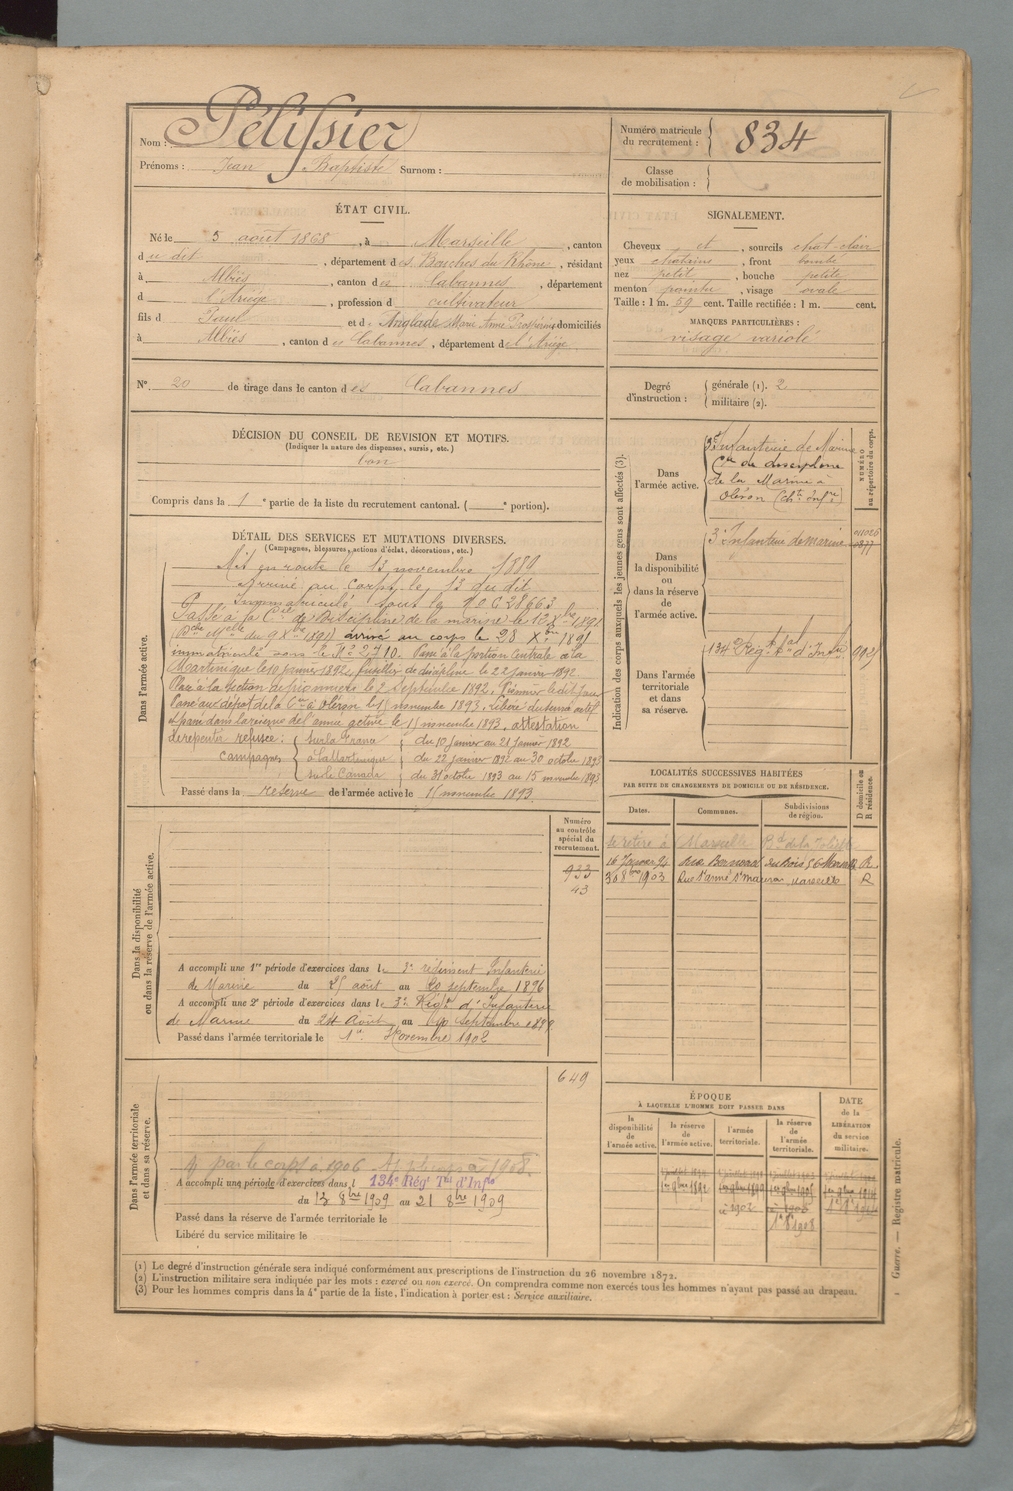 Nom : Pélissier
Prénoms : Jean Baptiste Surnom :
Numéro matricule du recrutement : 834
Classe de mobilisation :
ÉTAT CIVIL.
Né le 5 août 1868, à Marseille, canton
du dit, département des Bouches du Rhône, résidant
à Albiès, canton des Cabannes, département
d l'Ariège, profession de cultivateur
fils de Paul et de Anglade Marie Anne domiciliés
à Albiès, canton des Cabannes, département de l'Ariège.
N° 20 de tirage dans le canton des Cabannes
SIGNALEMENT.
Cheveux et, sourcils chat-clair
yeux chatains, front bombé
nez petit, bouche petite
menton pointu, visage ovale
Taille : 1 m. 59 cent. Taille rectifiée : 1 m. cent.
MARQUES PARTICULIÈRES :
visage variolé
Degré d'instruction : générale (1). 2
militaire (2).
DÉCISION DU CONSEIL DE REVISION ET MOTIFS.
(Indiquer la nature des dispenses, sursis, etc.)
bon
Compris dans la 1e partie de la liste du recrutement cantonal. ( e portion).
DÉTAIL DES SERVICES ET MUTATIONS DIVERSES.
(Campagnes, blessures, actions d'éclat, décorations, etc.)
Dans l'armée active.
Mis en route le 13 novembre 1889
Arrivé au corps le 13 du dit
Immatriculé sous le N°
Passé à la Cie de Discipline de la marine le 12 Xbre 1891
arrivé au corps le 28 Xbre 1891
immatriculé sous le N° 2710. Passé à la portion Centrale de la
Martinique le 10 janvier 1892, fusilier de discipline le 22 janvier 1892.
Placé à la Section de pionniers le 2 Septembre 1892.
Passé au dépôt de la Cie à Oléron le novembre 1893.
et passé dans la réserve de l'armée active le novembre 1893, attestation
de repentir refusée :
Campagnes
sur la France du 10 Janvier au 21 Janvier 1892
à la Martinique du 22 janvier 1892 au 30 octobre 1893
sur le Canada du 31 octobre 1893 au 15 novembre 1893
Passé dans la réserve de l'armée active le novembre 1893.
Indication des corps auxquels les jeunes gens sont affectés (3).
NUMÉRO au répertoire du corps.
Dans l'armée active.
3e Infanterie de Marine
Cie de discipline
de la Marine à
Oléron
Dans la disponibilité ou dans la réserve de l'armée active.
3e Infanterie de marine
Dans l'armée territoriale et dans sa réserve.
134e Régt tal d'Infie
LOCALITÉS SUCCESSIVES HABITÉES
PAR SUITE DE CHANGEMENTS DE DOMICILE OU DE RÉSIDENCE.
D domicile ou R résidence.
Dates. Communes. Subdivisions de région.
se retire à Marseille Bd de la Joliette
16 Janvier 94 Rue Bernard du Bois 56 Marseille R
1903 Rue Marseille R
Numéro au contrôle spécial du recrutement.
933
43
Dans la disponibilité ou dans la réserve de l'armée active.
A accompli une 1re période d'exercices dans le 3e régiment Infanterie
de Marine du 25 août au 20 septembre 1896
A accompli une 2e période d'exercices dans le 3e Régt d'Infanterie
de Marine du 24 Août au septembre
Passé dans l'armée territoriale le 1er Novembre 1902
649
Dans l'armée territoriale et dans sa réserve.
par le corps à 1906 à 1908.
A accompli une période d'exercices dans l 134e Régt Tal d'Infie
du 13 8bre 1909 au 21 8bre 1909
Passé dans la réserve de l'armée territoriale le
Libéré du service militaire le
ÉPOQUE
À LAQUELLE L'HOMME DOIT PASSER DANS
DATE de la LIBÉRATION du service militaire.
la disponibilité de l'armée active. la réserve de l'armée active. l'armée territoriale. la réserve de l'armée territoriale.
1er 9bre 1892
(1) Le degré d'instruction générale sera indiqué conformément aux prescriptions de l'instruction du 26 novembre 1872.
(2) L'instruction militaire sera indiquée par les mots : exercé ou non exercé. On comprendra comme non exercés tous les hommes n'ayant pas passé au drapeau.
(3) Pour les hommes compris dans la 4e partie de la liste, l'indication à porter est : Service auxiliaire.
Guerre. — Registre matricule.